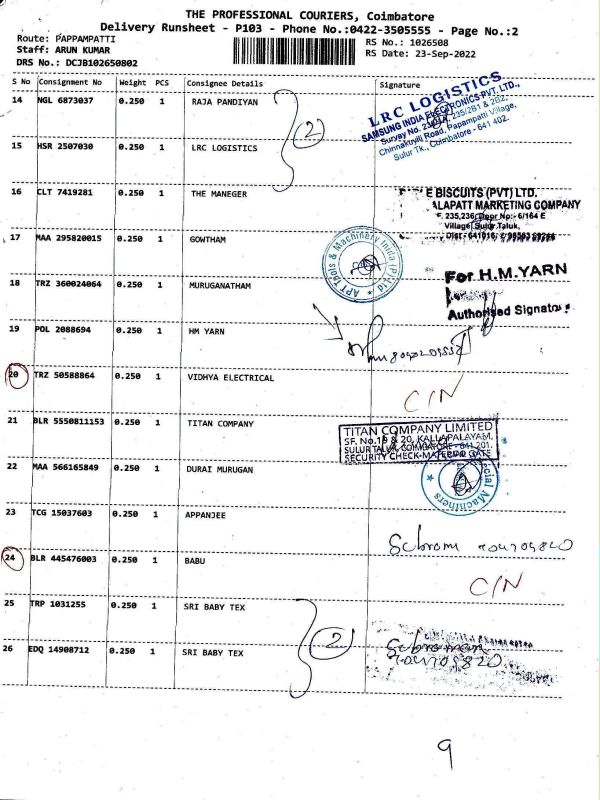 THE PROFESSIONAL COURIERS, Coimbatore
Delivery Runsheet - P103 - Phone No.:0422-3505555 - Page No.:2
Route: PAPPAMPATTI
RS No.: 1026508
Staff: ARUN KUMAR
RS Date: 23-Sep-2022
DRS No.: DCJB102650802
S No Consignment No Weight PCS Consignee Details Signature
14 NGL 6873037 0.250 1 RAJA PANDIYAN
2
LRC LOGISTICS
SAMSUNG INDIA ELECTRONICS PVT. LTD.,
Chinnakuyili Road, Papampatti Village,
Sulur Tk., Coimbatore - 641 402.
15 HSR 2507030 0.250 1 LRC LOGISTICS
16 CLT 7419281 0.250 1 THE MANEGER
E BISCUITS (PVT) LTD.
ALAPATT MARKETING COMPANY
F. 235,236, Door No:- 6/164 E
Village, Sulur Taluk,
17 MAA 295820015 0.250 1 GOWTHAM
APT Tools & Machinery India (P) Ltd
18 TRZ 360024064 0.250 1 MURUGANATHAM
For H.M. YARN
Authorised Signator
19 POL 2088694 0.250 1 HM YARN
20 TRZ 50588864 0.250 1 VIDHYA ELECTRICAL
C/N
21 BLR 5550811153 0.250 1 TITAN COMPANY
TITAN COMPANY LIMITED
SF. No.19 & 20, KALLAPALAYAM,
SULUR TALUK, COIMBATORE - 641 201.
SECURITY CHECK-MATERIAL GATE
22 MAA 566165849 0.250 1 DURAI MURUGAN
cial Machiners
23 TCG 15037603 0.250 1 APPANJEE
24 BLR 445476003 0.250 1 BABU
C/N
25 TRP 1031255 0.250 1 SRI BABY TEX
2
26 EDQ 14908712 0.250 1 SRI BABY TEX
9